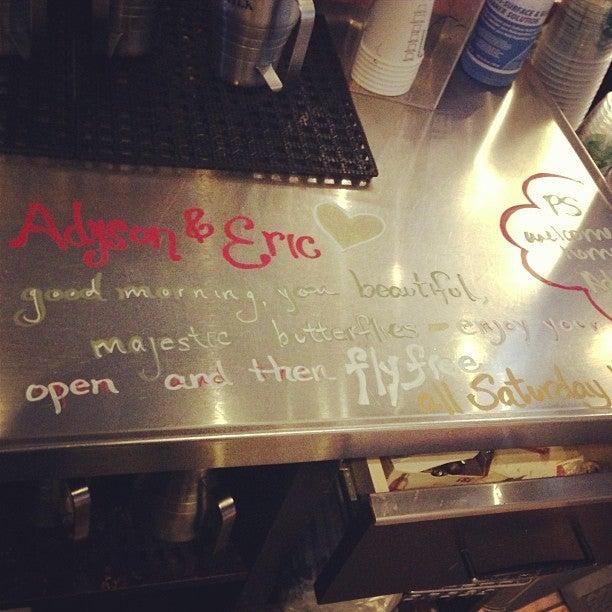 Adyson & Eric
good morning, you beautiful,
majestic butterflies - enjoy your
open and then fly free
all Saturday!
PS
welcome
home